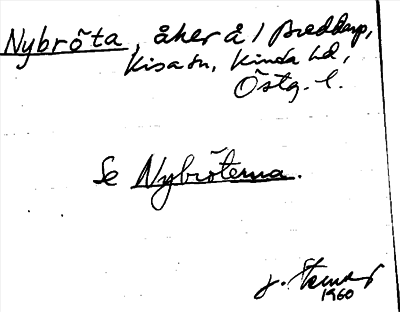 Nybröta, åker å / Bredderp,
Kisa sn, Kinda hd,
Östg. l.
Se Nybröterna.
1960